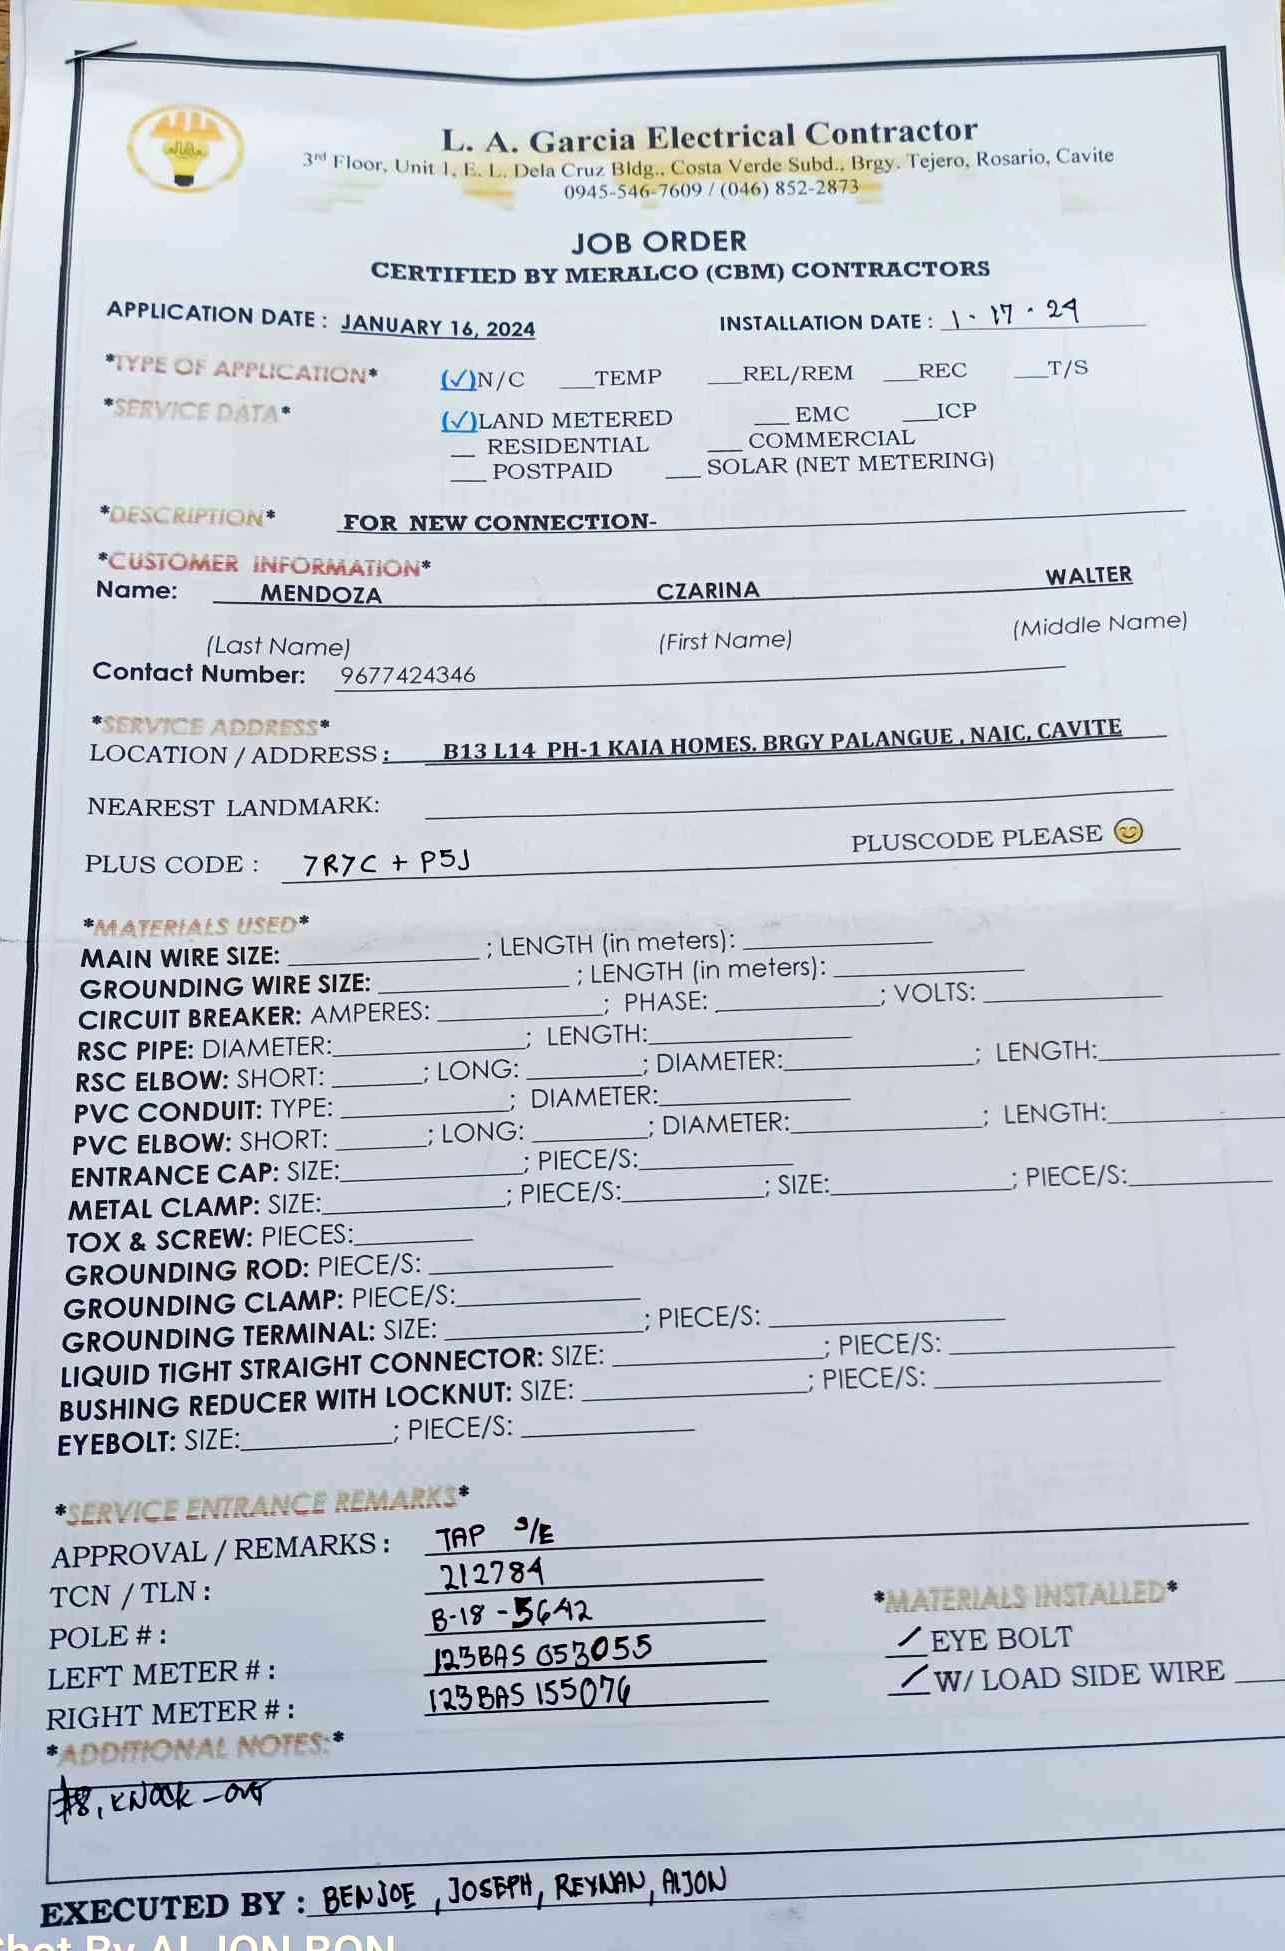 L. A. Garcia Electrical Contractor
3rd Floor, Unit 1, E. L. Dela Cruz Bldg., Costa Verde Subd., Brgy. Tejero, Rosario, Cavite
0945-546-7609 / (046) 852-2873
JOB ORDER
CERTIFIED BY MERALCO (CBM) CONTRACTORS
APPLICATION DATE : JANUARY 16, 2024 INSTALLATION DATE : 1 - 17 - 24
*TYPE OF APPLICATION* (✓)N/C ___TEMP ___REL/REM ___REC ___T/S
*SERVICE DATA* (✓)LAND METERED ___ EMC ___ICP
__ RESIDENTIAL ___COMMERCIAL
___ POSTPAID ___ SOLAR (NET METERING)
*DESCRIPTION* FOR NEW CONNECTION-
*CUSTOMER INFORMATION*
Name: MENDOZA CZARINA WALTER
(Last Name) (First Name) (Middle Name)
Contact Number: 9677424346
*SERVICE ADDRESS*
LOCATION / ADDRESS : B13 L14 PH-1 KAIA HOMES. BRGY PALANGUE , NAIC, CAVITE
NEAREST LANDMARK: ____
PLUS CODE : 7R7C + P5J PLUSCODE PLEASE 😊
*MATERIALS USED*
MAIN WIRE SIZE: ____ ; LENGTH (in meters): ____
GROUNDING WIRE SIZE: ____ ; LENGTH (in meters): ____
CIRCUIT BREAKER: AMPERES: ____; PHASE: ____; VOLTS: ____
RSC PIPE: DIAMETER:____; LENGTH:____
RSC ELBOW: SHORT: ____; LONG: ____; DIAMETER:____; LENGTH:____
PVC CONDUIT: TYPE: ____; DIAMETER:____
PVC ELBOW: SHORT: ____; LONG: ____; DIAMETER:____; LENGTH:____
ENTRANCE CAP: SIZE:____; PIECE/S:____
METAL CLAMP: SIZE:____; PIECE/S:____; SIZE:____; PIECE/S:____
TOX & SCREW: PIECES:____
GROUNDING ROD: PIECE/S: ____
GROUNDING CLAMP: PIECE/S:____
GROUNDING TERMINAL: SIZE: ____; PIECE/S: ____
LIQUID TIGHT STRAIGHT CONNECTOR: SIZE: ____; PIECE/S: ____
BUSHING REDUCER WITH LOCKNUT: SIZE: ____; PIECE/S: ____
EYEBOLT: SIZE:____; PIECE/S: ____
*SERVICE ENTRANCE REMARKS*
APPROVAL / REMARKS : TAP S/E
TCN / TLN : 212784
POLE # : B-18 -5642
LEFT METER # : 123BAS 053055
RIGHT METER # : 123BAS 155076
*MATERIALS INSTALLED*
/ EYE BOLT
/ W/ LOAD SIDE WIRE ___
*ADDITIONAL NOTES:*
#8, KNOCK-OUT
EXECUTED BY : BENJOE , JOSEPH, REYNAN, ALJON
Shot By ALJON BON